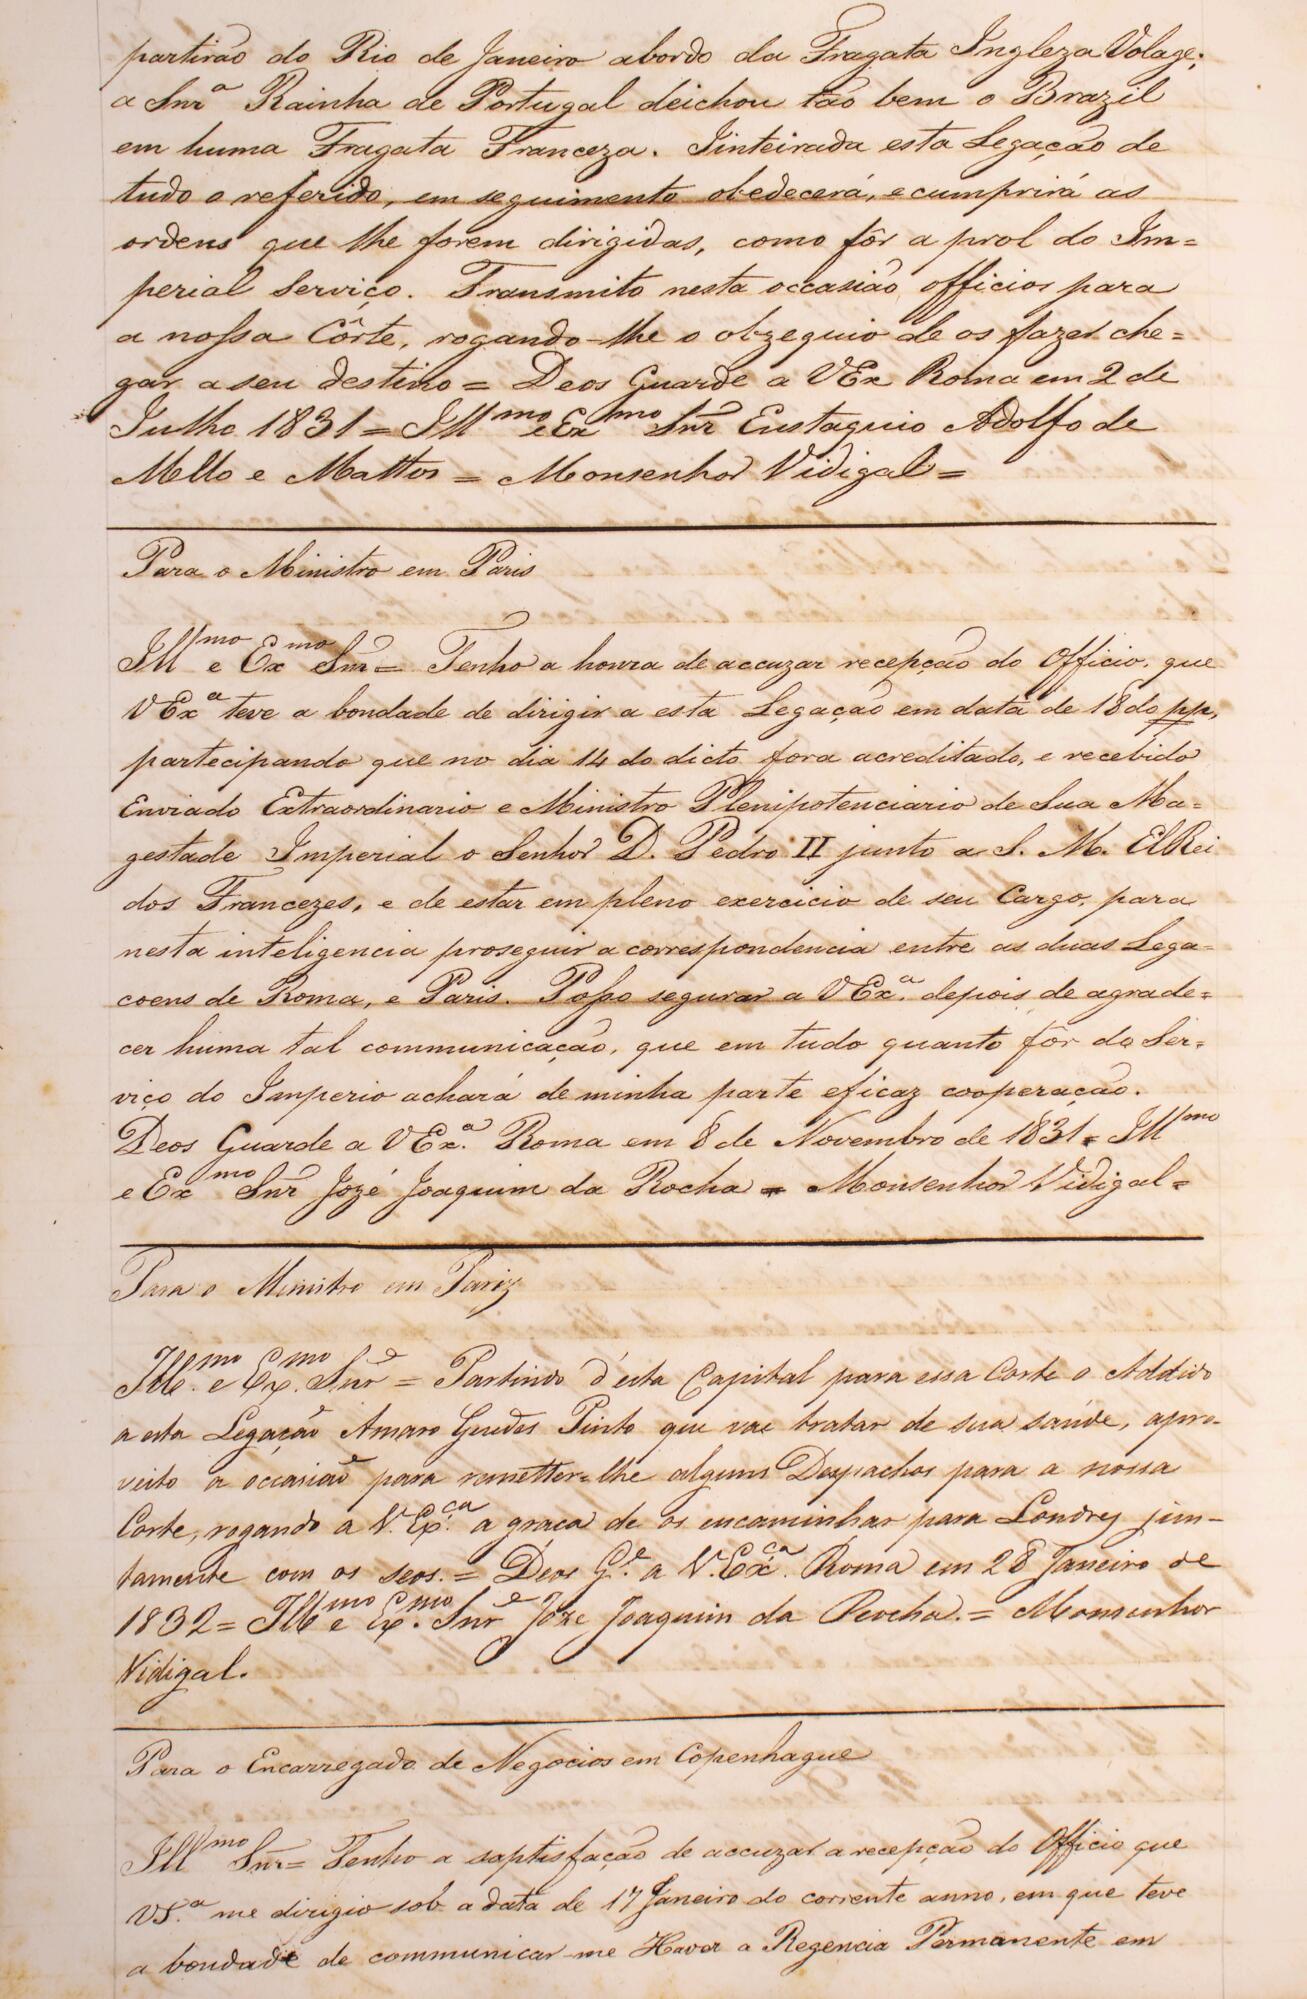 partirão do Rio de Janeiro abordo da Fragata Ingleza Volage;
a Snrª Rainha de Portugal deichou tão bem o Brazil
em huma Fragata Franceza. Iinteirada esta Legação de
tudo o referido, em seguimento obedecerá, e cumprirá as
ordens que lhe forem dirigidas, como fôr a prol do Im=
perial Serviço. Transmito nesta occasião officios para
a nossa Côrte, rogando-lhe o obzequio de os fazer che=
gar a seu destino = Deos Guarde a VEx Roma em 2 de
Julho 1831 = Illmo e Exmo Snr Eustaquio Adolfo de
Mello e Mattos = Monsenhor Vidigal =
Para o Ministro em Paris
Illmo e Exmo Snr = Tenho a honra de accuzar recepção do Officio, que
VExª teve a bondade de dirigir a esta Legação em data de 18 do pp,
partecipando que no dia 14 do dicto fora acreditado, e recebido
Enviado Extraordinario e Ministro Plenipotenciario de Sua Ma=
gestade Imperial o Senhor D. Pedro II junto a S. M. ElRei
dos Francezes, e de estar em pleno exercicio de seu Cargo, para
nesta inteligencia proseguir a correspondencia entre as duas Lega=
coens de Roma, e Paris. Posso segurar a VExª. depois de agrade=
cer huma tal communicação, que em tudo quanto fôr do Ser=
viço do Imperio achará de minha parte eficaz cooperação.
Deos Guarde a VExª. Roma em 8 de Novembro de 1831 = Illmo
e Exmo Snr Jozé Joaquim da Rocha = Monsenhor Vidigal =
Para o Ministro em Pariz
Illmo. e Exmo. Snr = Partindo d'esta Capital para essa Corte o Addido
a esta Legação Amaro Guedes Pinto que vai tratar de sua saúde, apro-
veito a occasião para remetter=lhe alguns Despachos para a nossa
Corte, rogando a V. Exca. a graça de os encaminhar para Londres jun-
tamente com os seos. = Deos Ge. a V. Exca. Roma em 28 Janeiro de
1832 = Illmo e Exmo. Snr Joze Joaquim da Rocha. = Monsenhor
Vidigal.
Para o Encarregado de Negocios em Copenhague
Illmo Snr = Tenho a saptisfação de accuzar a recepção do Officio que
VSª. me dirigio sob a data de 17 Janeiro do corrente anno, em que teve
a bondade de communicar-me Haver a Regencia Permanente em